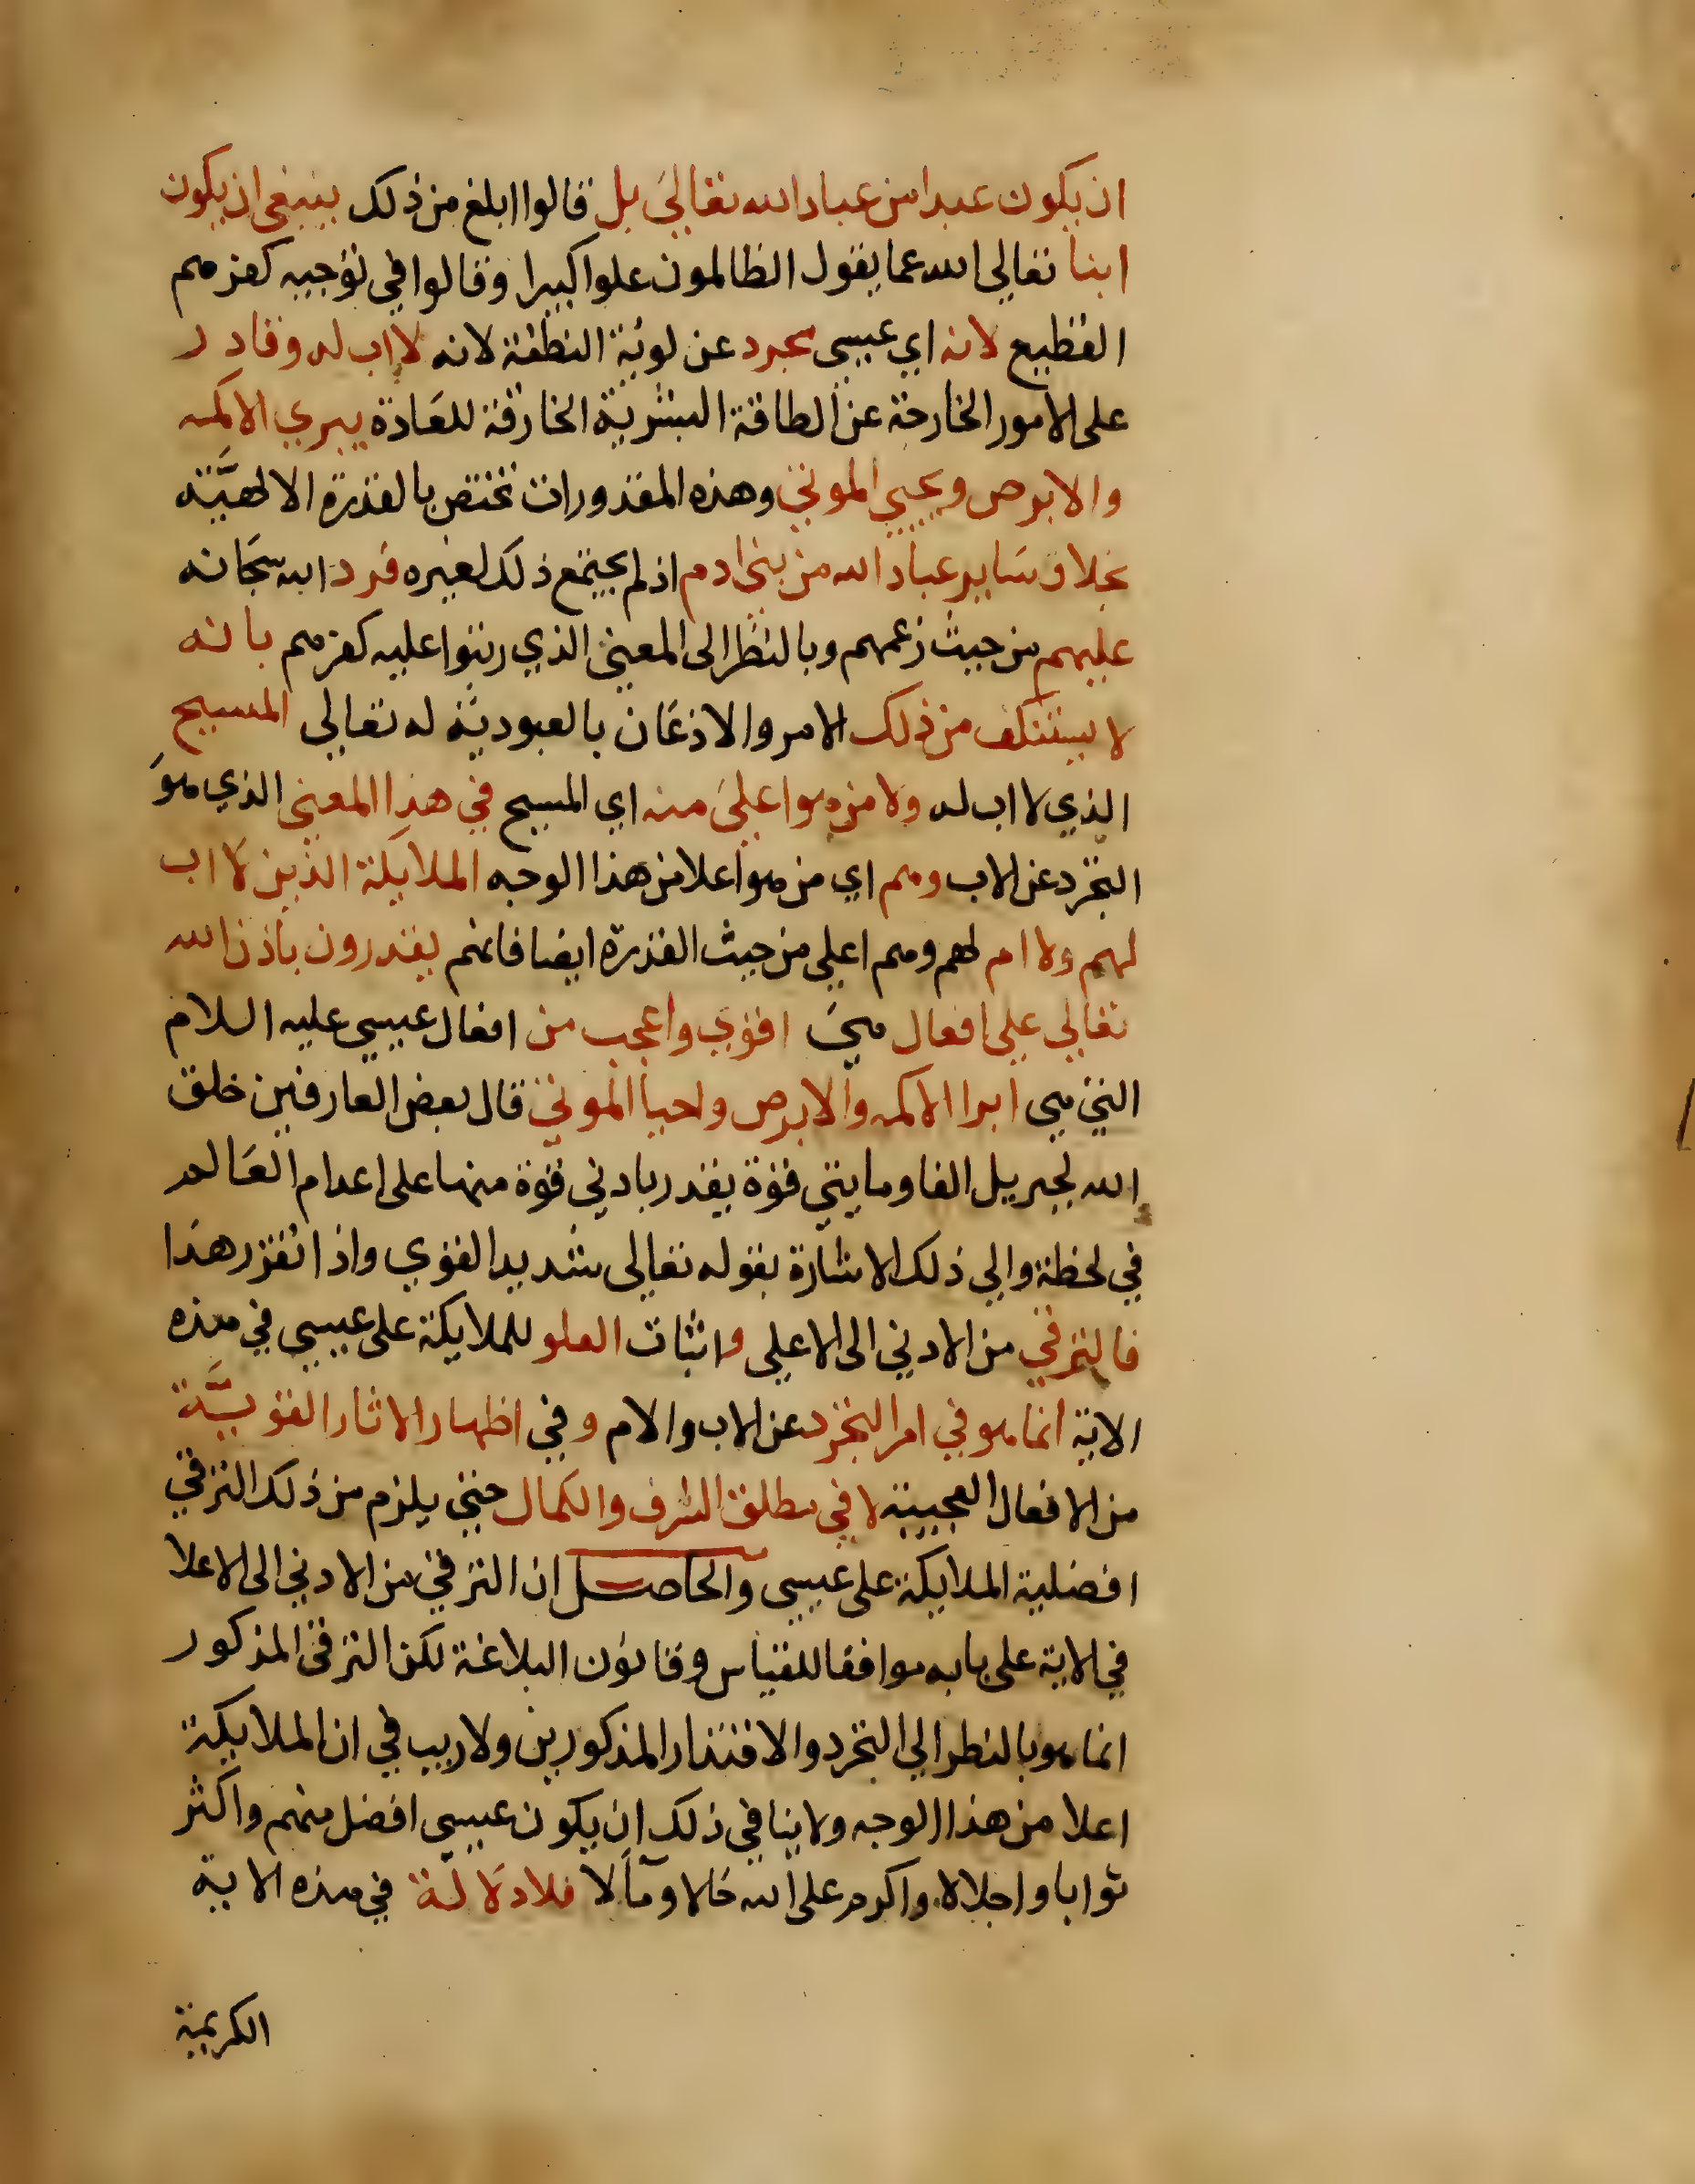 ان يكون عبدا من عباد الله تعالي بل قالوا ابلغ من ذلك ينبغي ان يكون
ابنا تعالي الله عما يقول الظالمون علوا كبيرا وقالوا في توجيه كفرهم
الفظيع لانه اي عيسي مجرد عن لوثة النطفة لانه لا اب له وقادر
على الامور الخارجة عن الطاقة البشرية الخارقة للعادة يبري الاكمه
والابرص ويحيي الموتي وهذه المقدورات تختص بالقدرة الالهيَّة
بخلاف ساير عباد الله من بني ادم اذ لم يجتمع ذلك لغيره فرد الله سبحانه
عليهم من حيث زعمهم وبالنظر الى المعني الذي رتبوا عليه كفرهم بانه
لا يستنكف من ذلك الامر والاذعان بالعبودية له تعالي المسيح
الذي لا اب له ولا من هو اعلي منه اي المسيح في هذا المعني الذي هو
التجرد عن الاب وهم اي من هو اعلا من هذا الوجه الملايكة الذين لا اب
لهم ولا ام لهم وهم اعلي من حيث القدرة ايضا فانهم يقدرون باذن الله
تعالي علي افعال هي اقوي واعجب من افعال عيسي عليه السلام
التي هي ابرا الاكمه والابرص واحيا الموتي قال بعض العارفين خلق
الله لجبريل الفا ومايتي قوة يقدر بادني قوة منها على اعدام العالم
في لحظة والي ذلك الاشارة بقوله تعالى شديد القوي واذا تقرر هذا
فالترقي من الادني الى الاعلي واثبات العلو للملايكة على عيسي في هذه
الاية انما هو في امر التجرد عن الاب والام وفي اظهار الاثار القويَّة
من الافعال العجيبة لا في مطلق الشرف والكمال حتي يلزم من ذلك الترقي
افضلية الملايكة على عيسي والحاصل ان الترقي من الادني الى الاعلا
في الاية على بابه موافقا للقياس وقانون البلاغة لكن الترقي المذكور
انما هو بالنظر الي التجرد والاقتدار المذكورين ولا ريب في ان الملايكة
اعلا من هذا الوجه ولا ينافي ذلك ان يكون عيسي افضل منهم واكثر
ثوابا واجلالا واكرم على الله حالا ومآلا فلا دلالة في هذه الاية
الكريمة